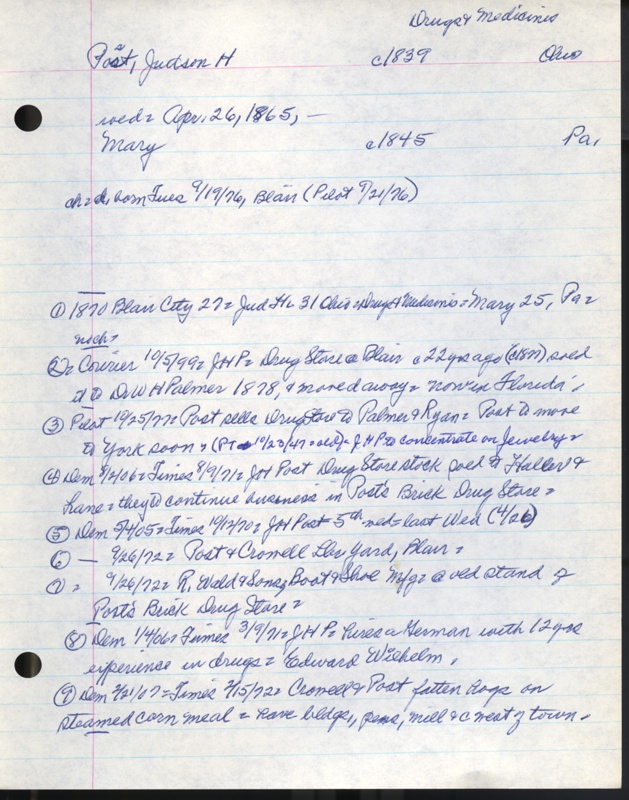 Drugs & Medicines
Post, Judson H c1839 Ohio
wed = Apr. 26, 1865, —
Mary c1845 Pa.
ch = d, born Tues 9/19/76, Blair (Pilot 9/21/76)
① 1870 Blair City 27 = Jud H = 31 Ohio = Drugs & Medicines = Mary 25, Pa =
noch =
② = Courier 10/5/99 = JHP = Drug Store @ Blair c 22 yrs ago (c1877) sold
it to Dr W H Palmer 1878, & moved away = now in Florida.
③ Pilot 10/25/77 = Post sells Drug Store to Palmer & Ryan = Post to move
to York soon = (PT 10/23/47 = JHP to concentrate on Jewelry =
④ Dem 8/2/06 = Times 8/9/71 = JH Post Drug Store stock sold to Haller &
Lane = they to continue business in Post's Brick Drug Store =
⑤ Dem 5/4/05 = Times = JH Post 5th wed = last Wed (4/26)
⑥ — 9/26/72 = Post & Crowell Lbr Yard, Blair =
⑦ = 9/26/72 = R. Wald & Sons, Boot & Shoe Mfg = @ old stand of
Post's Brick Drug Store =
⑧ Dem 1/4/06 = Times 3/9/71 = JHP = hires a German with 12 yrs
experience in drugs = Edward Wilhelm.
⑨ Dem 2/21/07 = Times 2/15/72 = Crowell & Post fatten hogs on
steamed corn meal = have bldgs, pens, mill &c west of town.